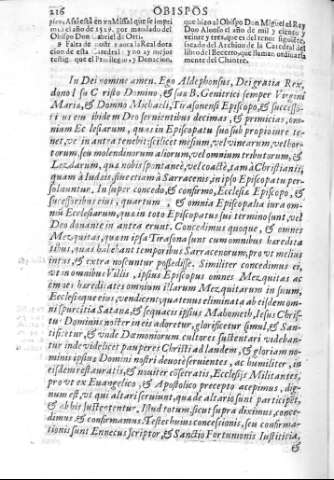 216 OBISPOS
pies, Assi està en vn Missal que se impri
miò el año de 1529. por mandado del
Obispo Don Gabriel de Orti.
9 Falta de notar aora la Real dota
cion de esta Catedral: y no ay mejor
testigo que el Priuilegio, y Donacion,
que hizo al Obispo Don Miguel el Rey
Don Alonso el año de mil y ciento y
veinte y tres, que es del tenor siguiente,
sacado del Archivo de la Catedral del
libro del Becerro, que llaman ordinaria
mente del Chiutre.
In Dei nomine amen. Ego Aldephonsus, Dei gratia Rex,
dono I su C risto Domino, & sac B. Genitrici semper Virgini
Maria, & Domno Michaeli, Tirasonensi Episcopo, & successo
ri us em ibidem Deo seruientibus decimas, & primicias, om
nium Ec lesiarum, quas in Episcopatu suo sub proprio iure te
net, ve in antea tenebit: scilicet messium, vel vinearum, vel hor
torum, seu molendinorum aliorum, vel omnium tributorum, &
Lezdarum, qua nobis spontanè, vel coactè, tam à Christianis,
quam à Iudeis, sine etiam à Sarracenis, in ipso Episcopatu per
soluuntur. In super concedo, & confirmo, Ecclesia Episcopo, &
sucessoribus eius, quartum, & omnia Episcopalia iura om
nium Ecclesiarum, qua in toto Episcopatu sui termino sunt, vel
Deo donante in antea erunt. Concedimus quoque, & omnes
Mezquitas, quam ipsa Tirasona sunt cum omnibus haredita
tibus, quas habebant temporibus Sarracenorum, prout melius
intus, & extra noscuntur possedisse. Similiter concedimus ei,
vt in omnibus Villis, ipsius Episcopus omnes Mezquitas ac
omnes hareditates omnium illarum Mezquitarum in suum,
Ecclesia que eius, vendicent; quatenus eliminata ab eisdem om
ni spurcitia Satana, & sequacis ipsius Mahometh, Iesus Chris
tus Dominus noster in eis adoretur, glorificetur simul, & San
tificetur, & vnde Dæmoniorum cultores sustentari videban
tur inde videlicet pauperes Christi ad laudem, & gloriam no
minis ipsius Domini nostri deuotè seruientes, ac humiliter, in
eisdem restauratis, & nouiter cõsecratis, Ecclesiis Militantes,
pro vt ex Euangelico, & Apostolico precepto accepimus, dig-
num est, vt qui altari seruiunt, qua de altario sunt participẽt,
& ab hic sustententur. Istud totum, sicut supra diximus, conce-
dimus, & confirmamus. Testes huius concessionis, seu confirma-
tionis sunt Ennecus scriptor, & Sanctio Fortunionis Iustitia,
&